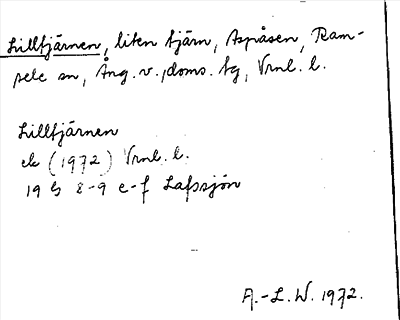 Lilltjärnen, liten tjärn, Aspåsen, Ram-
sele sn, Ång. v. doms. tg, Vrnl. l.
Lilltjärnen
ek (1972) Vrnl. l.
19 G 8-9 e-f Lafssjön
A.-L. W. 1972.